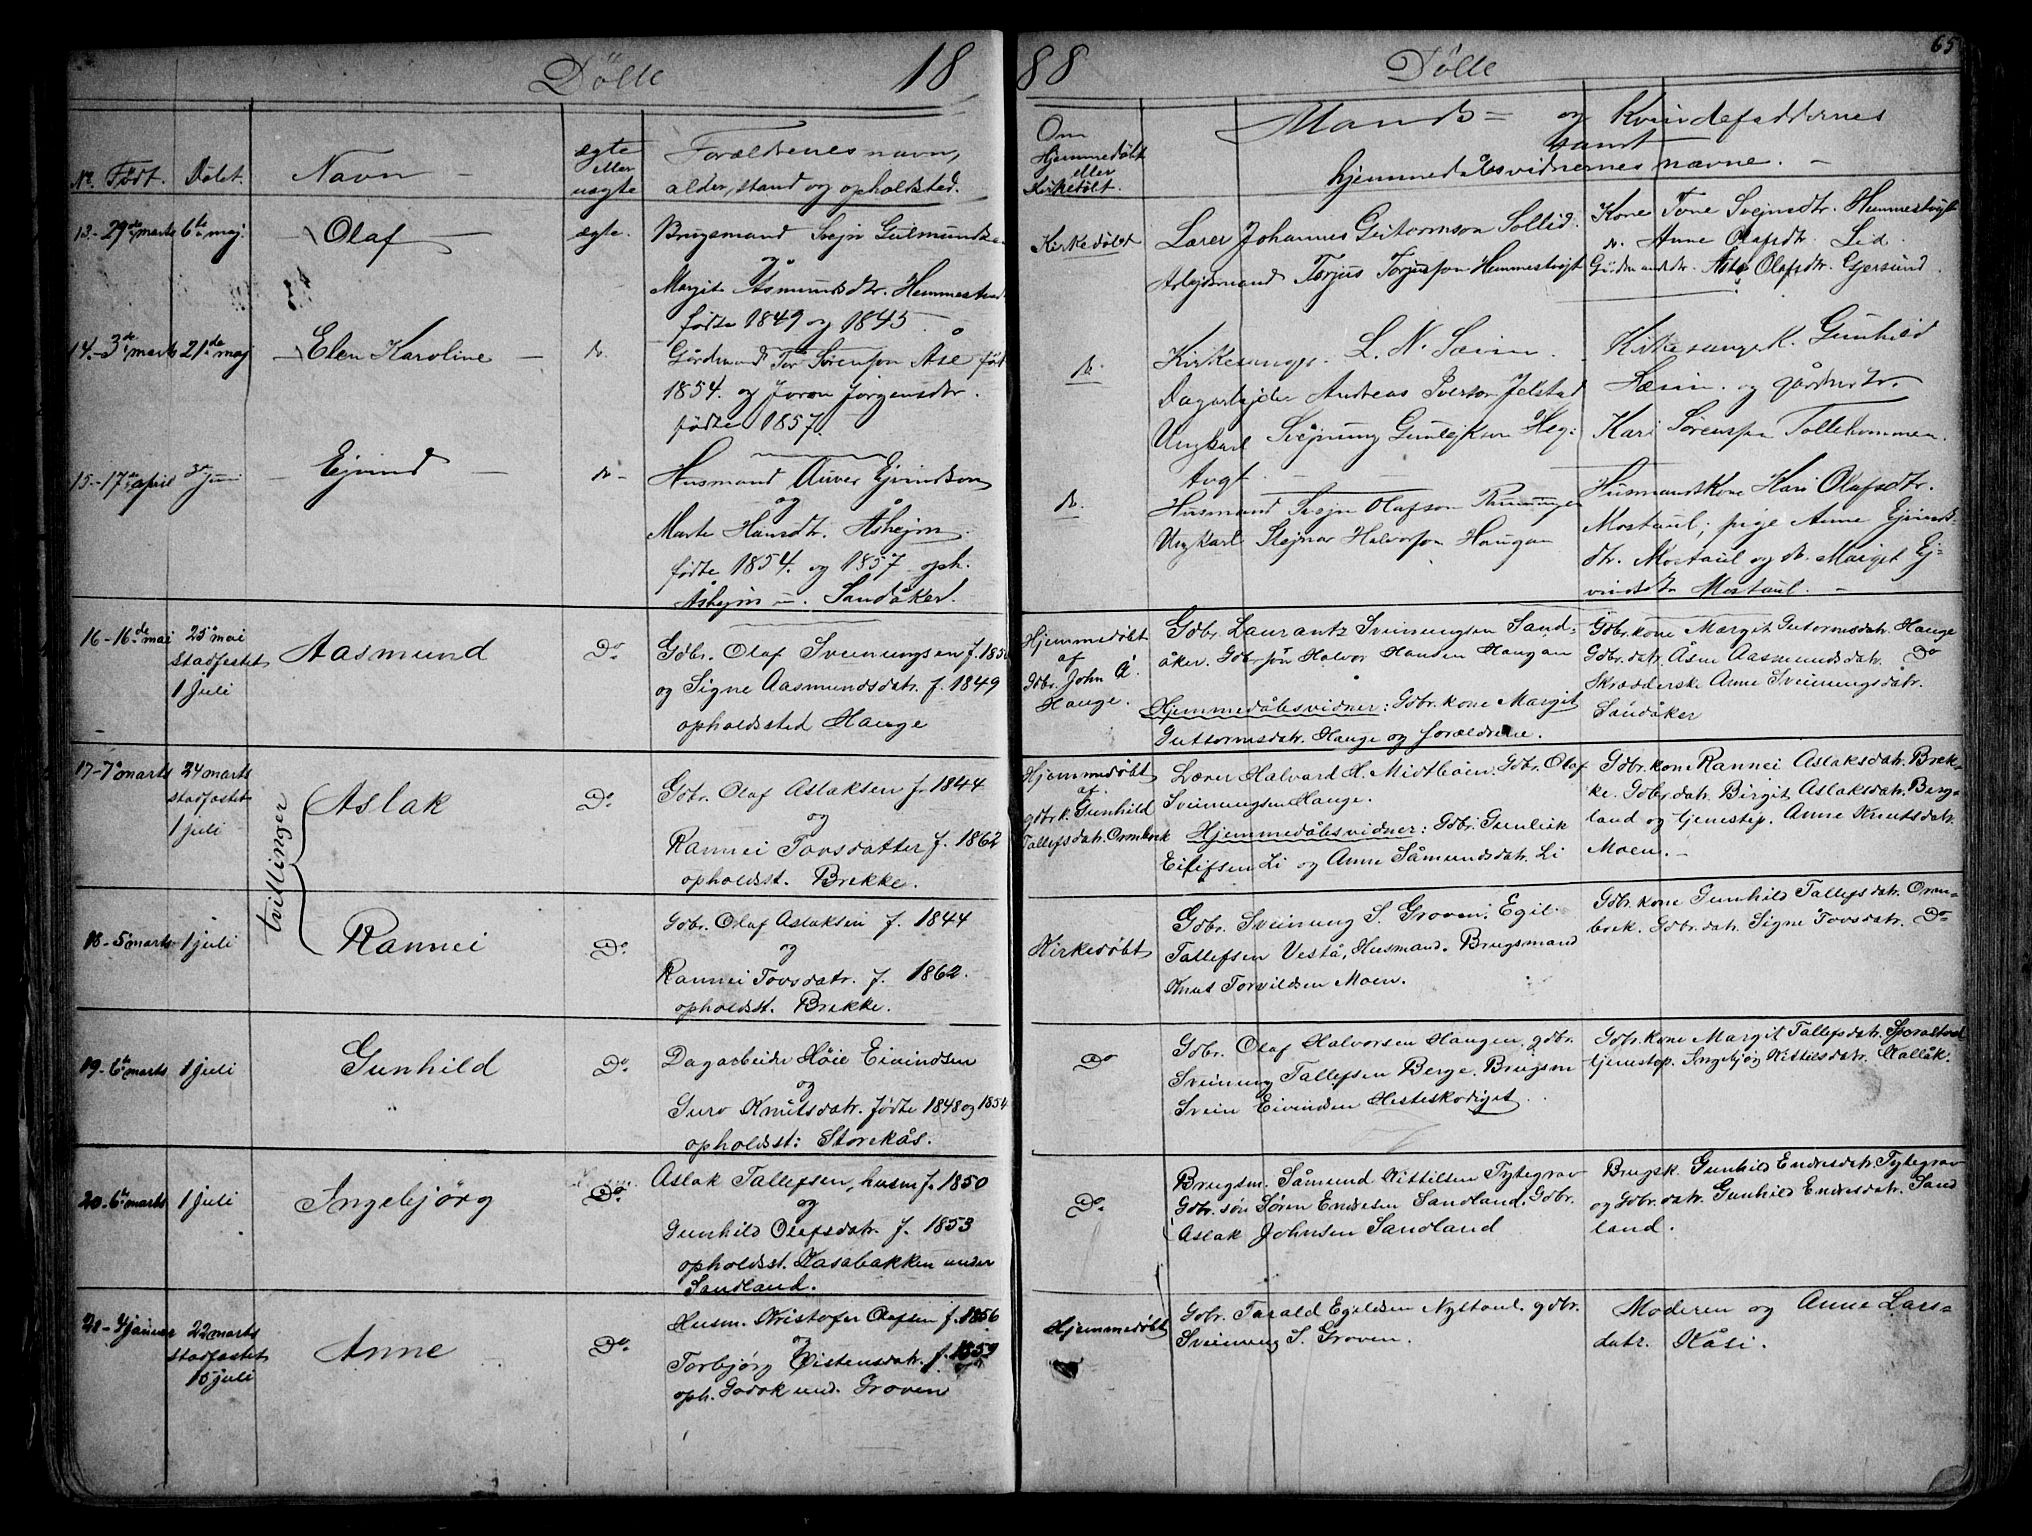 65
Døbte 18 88 Døbte
No. Født. Døbt. Navn ægte eller uægte Forældrenes navn, alder, stand og opholdsted.
Om Hjemmedøbt eller Kirkedøbt. Mands= og Kvindefaddernes samt hjemmedåbsvidnernes navne.
13 - 29de marts 6te maj. Olaf ægte.
Brugsmand Svejn Gutmundsen
og
Margit Åsmundsdtr. Hemmestveit
fødte 1849 og 1845
Kirkedøbt
Lærer Johannes Gutormson Sollid.
Arbejdsmand Torjus Torjusson Hemmestvejt
Kone Tone Svejnsdtr. Hemmestvejt
do. Anne Olafsdtr. Lid.
Gårdmandsdtr. Åste Olafsdtr. Gjersund.
14. - 3de marts 21de maj Elen Karoline do.
Gårdmand Tor Sørenson Åse født
1854. og Joron Jørgensdtr.
født 1857.
do.
Kirkesanger. L. N. Sæim
Dagarbejder Andreas Iverson Jelstad
Ungkarl Svejnung Gunlejkson Heg-
tvgt
Kirkesangek. Gunhild
Sæim. og gårdmdtr.
Kari Sørensdtr Tollehommen.
15 - 17de april 3de Juni Ejvind do -
Husmand Auver Ejvindson
og
Marte Hansdtr. Åshejm.
fødte 1854. og 1857 oph.
Åshejm u. Sandåker.
do.
Husmand Svejn Olafson Runningen
Ungkarl Stejnar Halvorson Haugan
Husmandskone Kari Olafsdtr.
Mostaul; pige Anne Ejvinds-
dtr. Mostaul og do. Margit Ej-
vindsdtr Mostaul.
16 - 16de mai 25de mai
stadfæstet
1 juli
Aasmund Do.
Gdbr. Olaf Sveinungsen f. 1850
og Signe Aasmundsdatr. f. 1849
opholdssted Hauge
Hjemmedøbt
af
Gdbr. John A.
Hauge.
Gdbr. Laurantz Sveinungsen Sand-
åker. Gdbr søn Halvor Hansen Haugan
Hjemmedåbsvidner: Gdbr. kone Margit
Guttormsdatr. Hauge og forældrene.
Gdbr. kone Margit Guttormsdatr. Hauge
Gdbr. datr. Asne Aasmundsdatr. Do
Skrædderske Anne Sveinungsdatr.
Sandåker
tvillinger
17 - 7de marts 24 marts
stadfæstet
1 juli
Aslak Do.
Gdbr. Olaf Aslaksen f. 1844
og
Rannei Tovsdatter f. 1862
opholdsst. Brekke.
Hjemmedøbt
af.
gdbr k. Gunhild
Tallefsdatr. Ormbrek
Lærer Halvard H. Midtbøen. Gdbr. Olaf
Sveinungsen Hauge.
Hjemmedåbsvidner: Gdbr. Gunleik
Eilifsen Li og Anne Såmundsdatr. Li
Gdbr. kone Rannei Aslaksdatr. Brek-
ke. Gdbr. datr. Birgit Aslaksdatr. Berg-
land og tjenestep. Anne Knutsdatr.
Moen. -
18 - 5te marts 1 juli Rannei Do.
Gdbr. Olaf Aslaksen f. 1844
og
Rannei Tovsdatr. f. 1862.
opholdsst. Brekke.
Kirkedøbt
Gdbr. Sveinung S. Groven. Egil
Tallefsen Vestå, Husmand. Brugsmand
Knut Torvildsen Moen.
Gdbr. kone Gunhild Tallefsdatr. Orm-
brek. Gdbr. datr. Signe Tovsdatr. Do
19 - 6te marts 1 juli Gunhild Do.
Dagarbeider Høie Eivindsen
og
Guro Knutsdatr. fødte 1848 og 1854
opholdsst: Storekås.
Do
Gdbr. Olaf Halvorsen Haugen, gdbr.
Sveinung Tallefsen Berge. Brugsm
Svein Eivindsen Hesteskodiget.
Gdbr. kone Margit Tallefsdatr. Sporaltveit
tjenestep. Ingebjørg Kittilsdatr. Kallåk.
20 - 6te marts 1 juli Ingebjørg Do.
Aslak Tallefsen, husm f. 1850
og
Gunhild Olefsdatr. f. 1853
opholdsst. Kasabakken under
Sandland.
Do.
Brugsm. Såmund Kittilsen Tytegrav
Gdbr. søn Søren Endresen Sandland. Gdbr.
Aslak Johnsen Sandland
Brugsk. Gunhild Endresdatr. Tytegrav
og Gdbr. datr. Gunhild Endresdatr. Sand
land.
21 - 4 januar 22 marts
stadfæstet
15 juli
Anne Do.
Husm. Kristofer Olefsen f. 1856
og
Torbjørg Øistensdatr. f. 1859
oph. Godok und. Groven
Hjemmedøbt
Gdbr. Tarald Egildsen Nystaul. gdbr.
Sveinung S. Groven.
Moderen og Anne Lars-
datr. Kåsi.